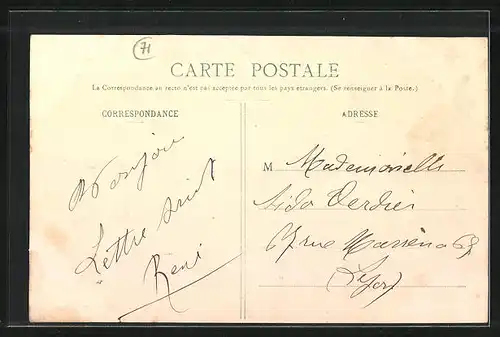 71
CARTE POSTALE
La Correspondance au recto n'est pas acceptée par tous les pays étrangers. (Se renseigner à la Poste.)
CORRESPONDANCE
ADRESSE
Bonjour
Lettre suit
René
M Mademoiselle
Aida Verdier
17 rue Masséna 69
Lyon